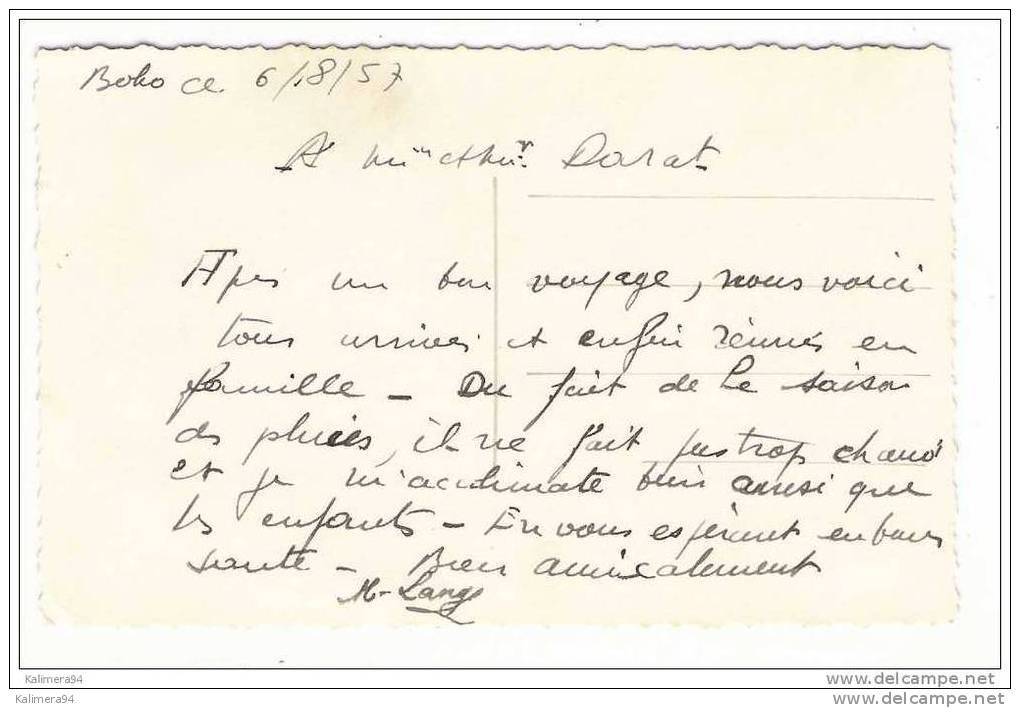 Boko Ce. 6/8/57
A Mme et Mr. Dorat
Après un bon voyage, nous voici
tous arrivés et enfin réunis en
famille – Du fait de la saison
des pluies, il ne fait pas trop chaud
et je m'acclimate bien ainsi que
les enfants – En vous espérant en bonne
santé – Bien amicalement
M. Lange
Kalimera94
delcampe.net
Kalimera94
delcampe.net